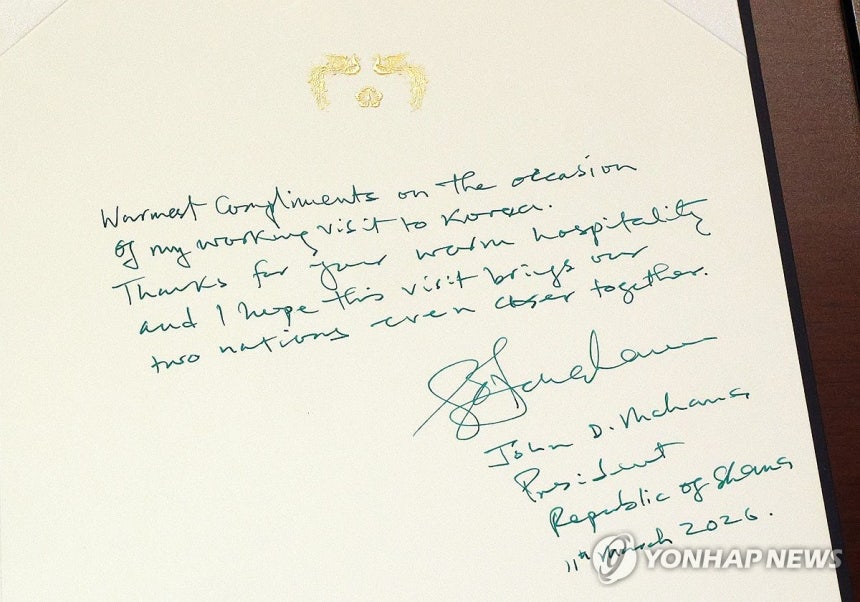 Warmest Compliments on the occasion
of my working visit to Korea.
Thanks for your warm hospitality
and I hope this visit brings our
two nations even closer together.
John D. Mahama
President
Republic of Ghana
11th March 2026.
YONHAP NEWS